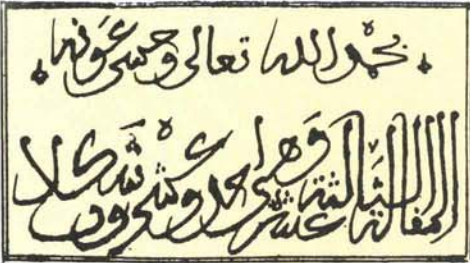 بحمد الله تعالى وحسن عونه
المقالة الثالثة عشر وهي احد وعشرون شكلا